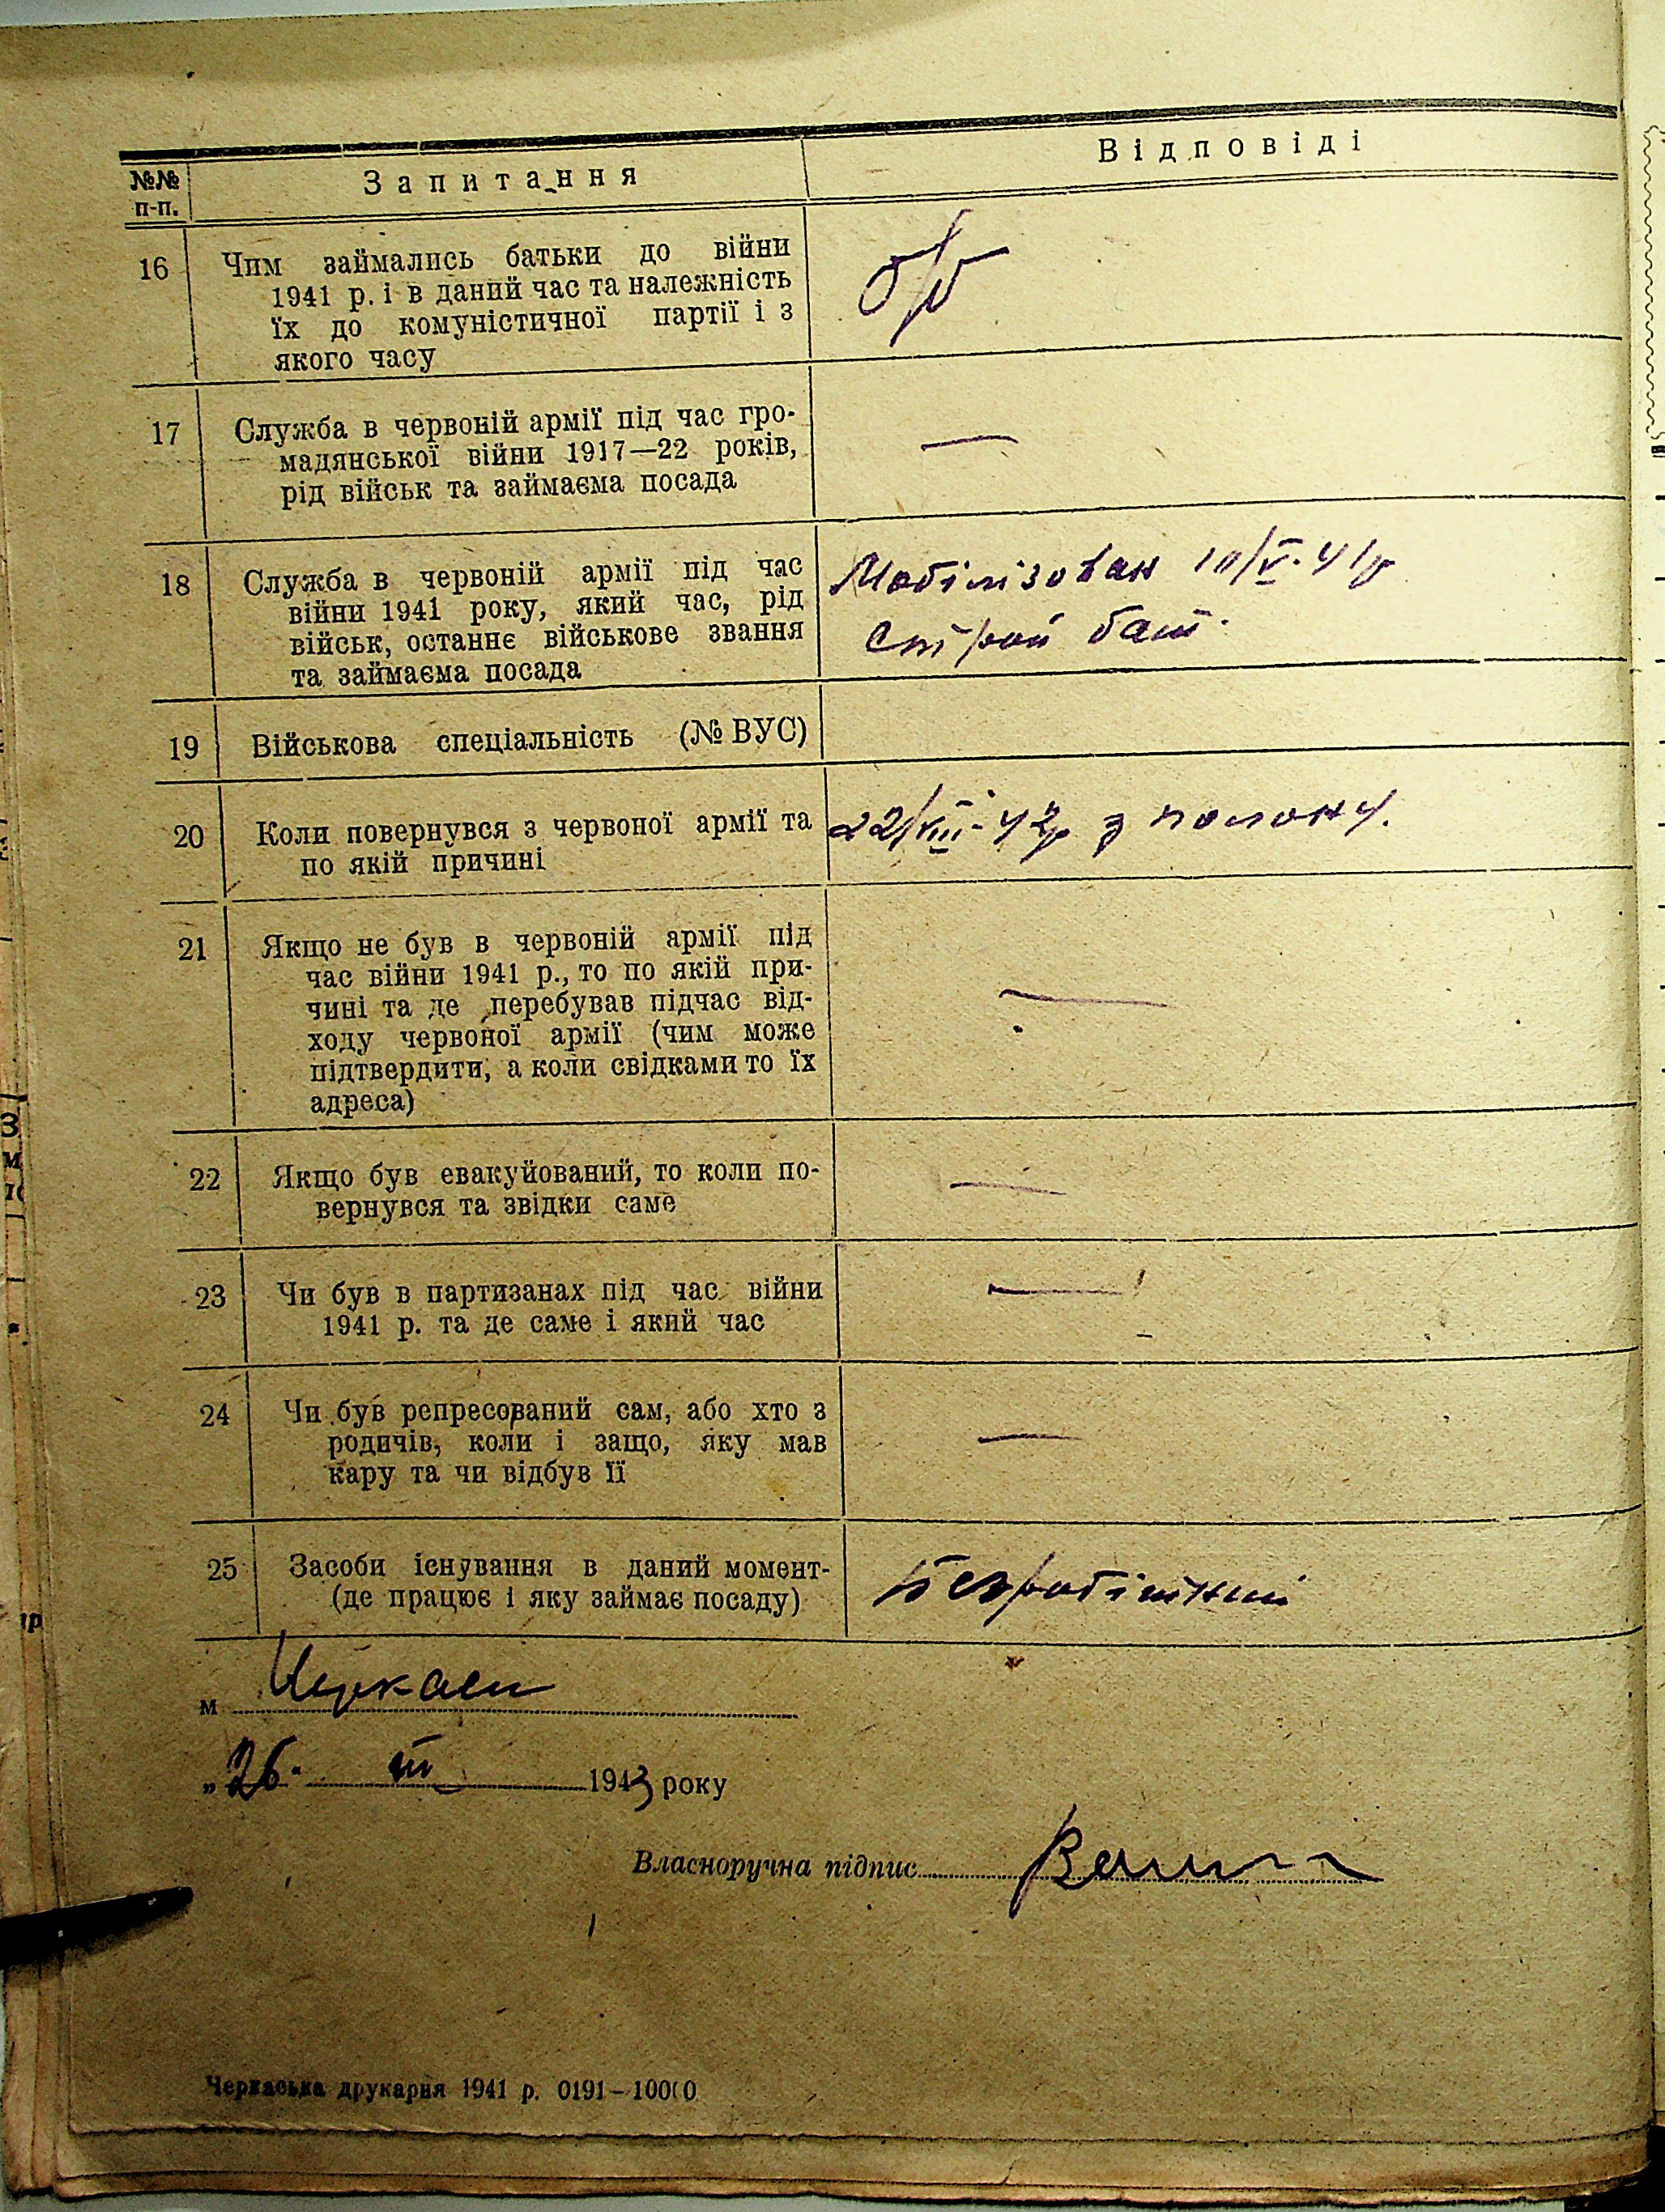 №№ п-п. Запитання Відповіді
16 Чим займались батьки до війни
1941 р. і в даний час та належність
їх до комуністичної партії і з
якого часу
б/п
17 Служба в червоній армії під час гро-
мадянської війни 1917—22 років,
рід військ та займаєма посада
—
18 Служба в червоній армії під час
війни 1941 року, який час, рід
військ, останнє військове звання
та займаєма посада
Мобілізован 10/V-41р
Строй бат.
19 Військова спеціальність (№ ВУС)
20 Коли повернувся з червоної армії та
по якій причині
22/VIII-42р з полону.
21 Якщо не був в червоній армії під
час війни 1941 р., то по якій при-
чині та де перебував підчас від-
ходу червоної армії (чим може
підтвердити, а коли свідками то їх
адреса)
—
22 Якщо був евакуйований, то коли по-
вернувся та звідки саме
—
23 Чи був в партизанах під час війни
1941 р. та де саме і який час
—
24 Чи був репресований сам, або хто з
родичів, коли і защо, яку мав
кару та чи відбув її
—
25 Засоби існування в даний момент-
(де працює і яку займає посаду)
Безробітний
м Черкаси
„26" III 1943 року
Власноручна підпис
Черкаська друкарня 1941 р. 0191—10000